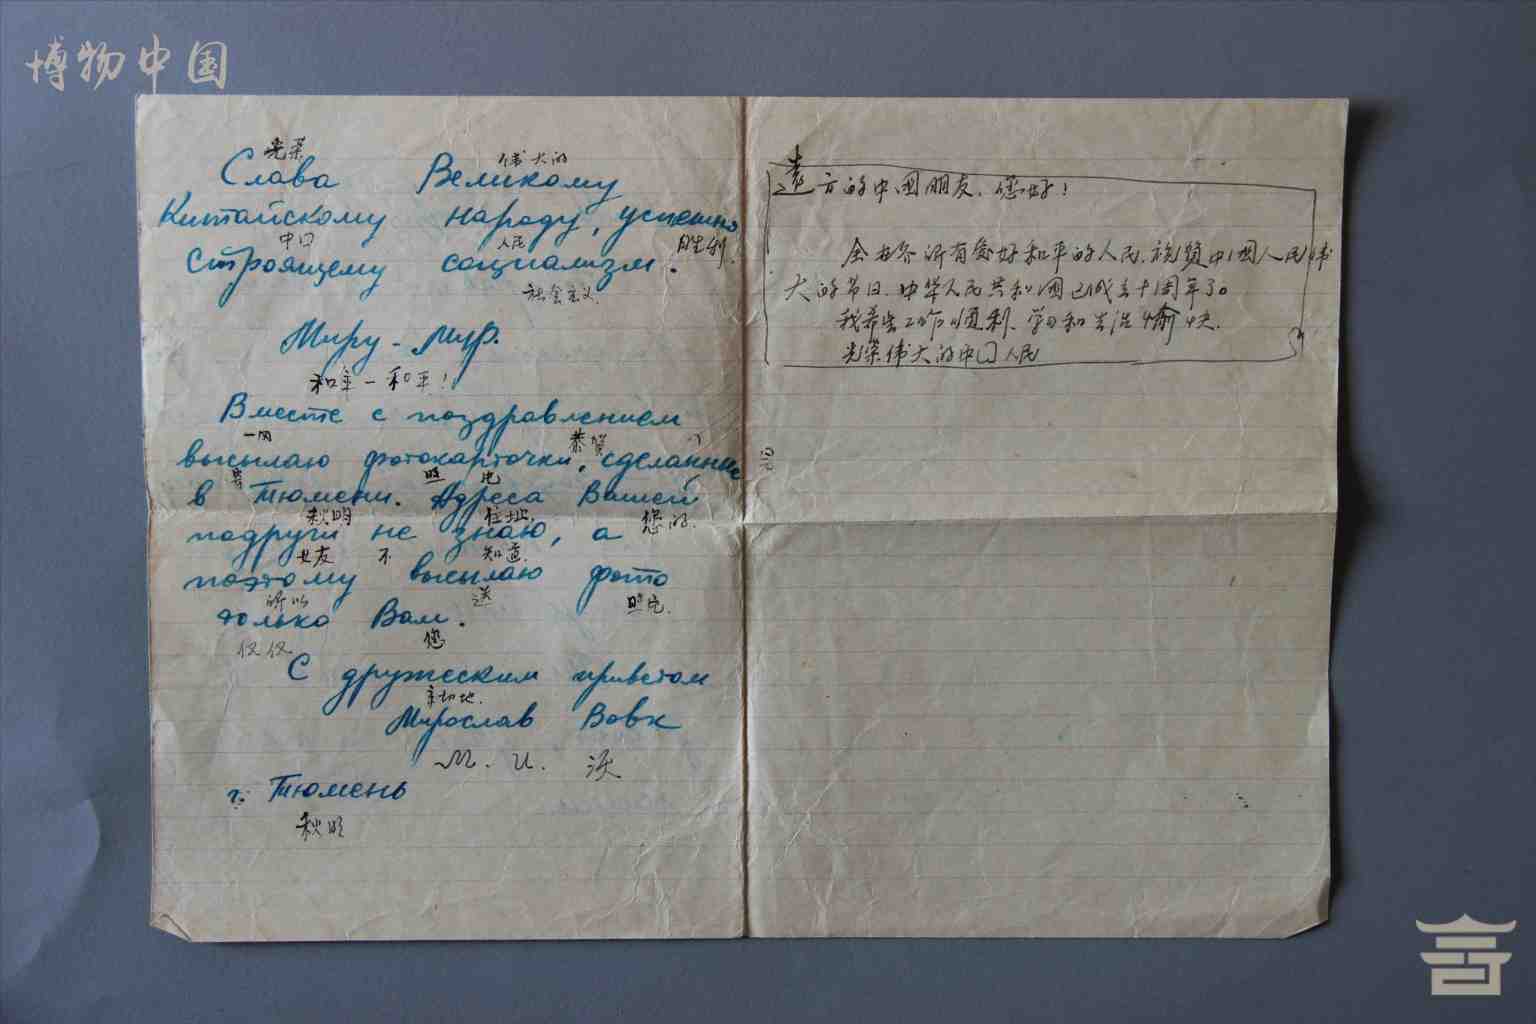 博物中国
光荣 伟大的
Слава Великому
Китайскому народу, успешно
中国 人民 胜利.
строящему социализм.
社会主义.
Миру - мир.
和平 - 和平!
Вместе с поздравлением
一同 恭贺
высылаю фотокарточки, сделанные
寄 照片
в Тюмени. Адреса Вашей
秋明 住址. 您的.
подруги не знаю, а
女友 不 知道.
поэтому высылаю фото
所以 送 照片.
только Вам.
仅仅 您
С дружеским приветом
亲切地.
Мирослав Вовк
М. И. 沃
г. Тюмень
秋明
遠方的中国朋友、您好!
全世界所有爱好和平的人民、祝贺中国人民伟
大的节日、中华人民共和国已成立十周年了。
我希望工作顺利、学习和生活愉快.
光荣伟大的中国人民